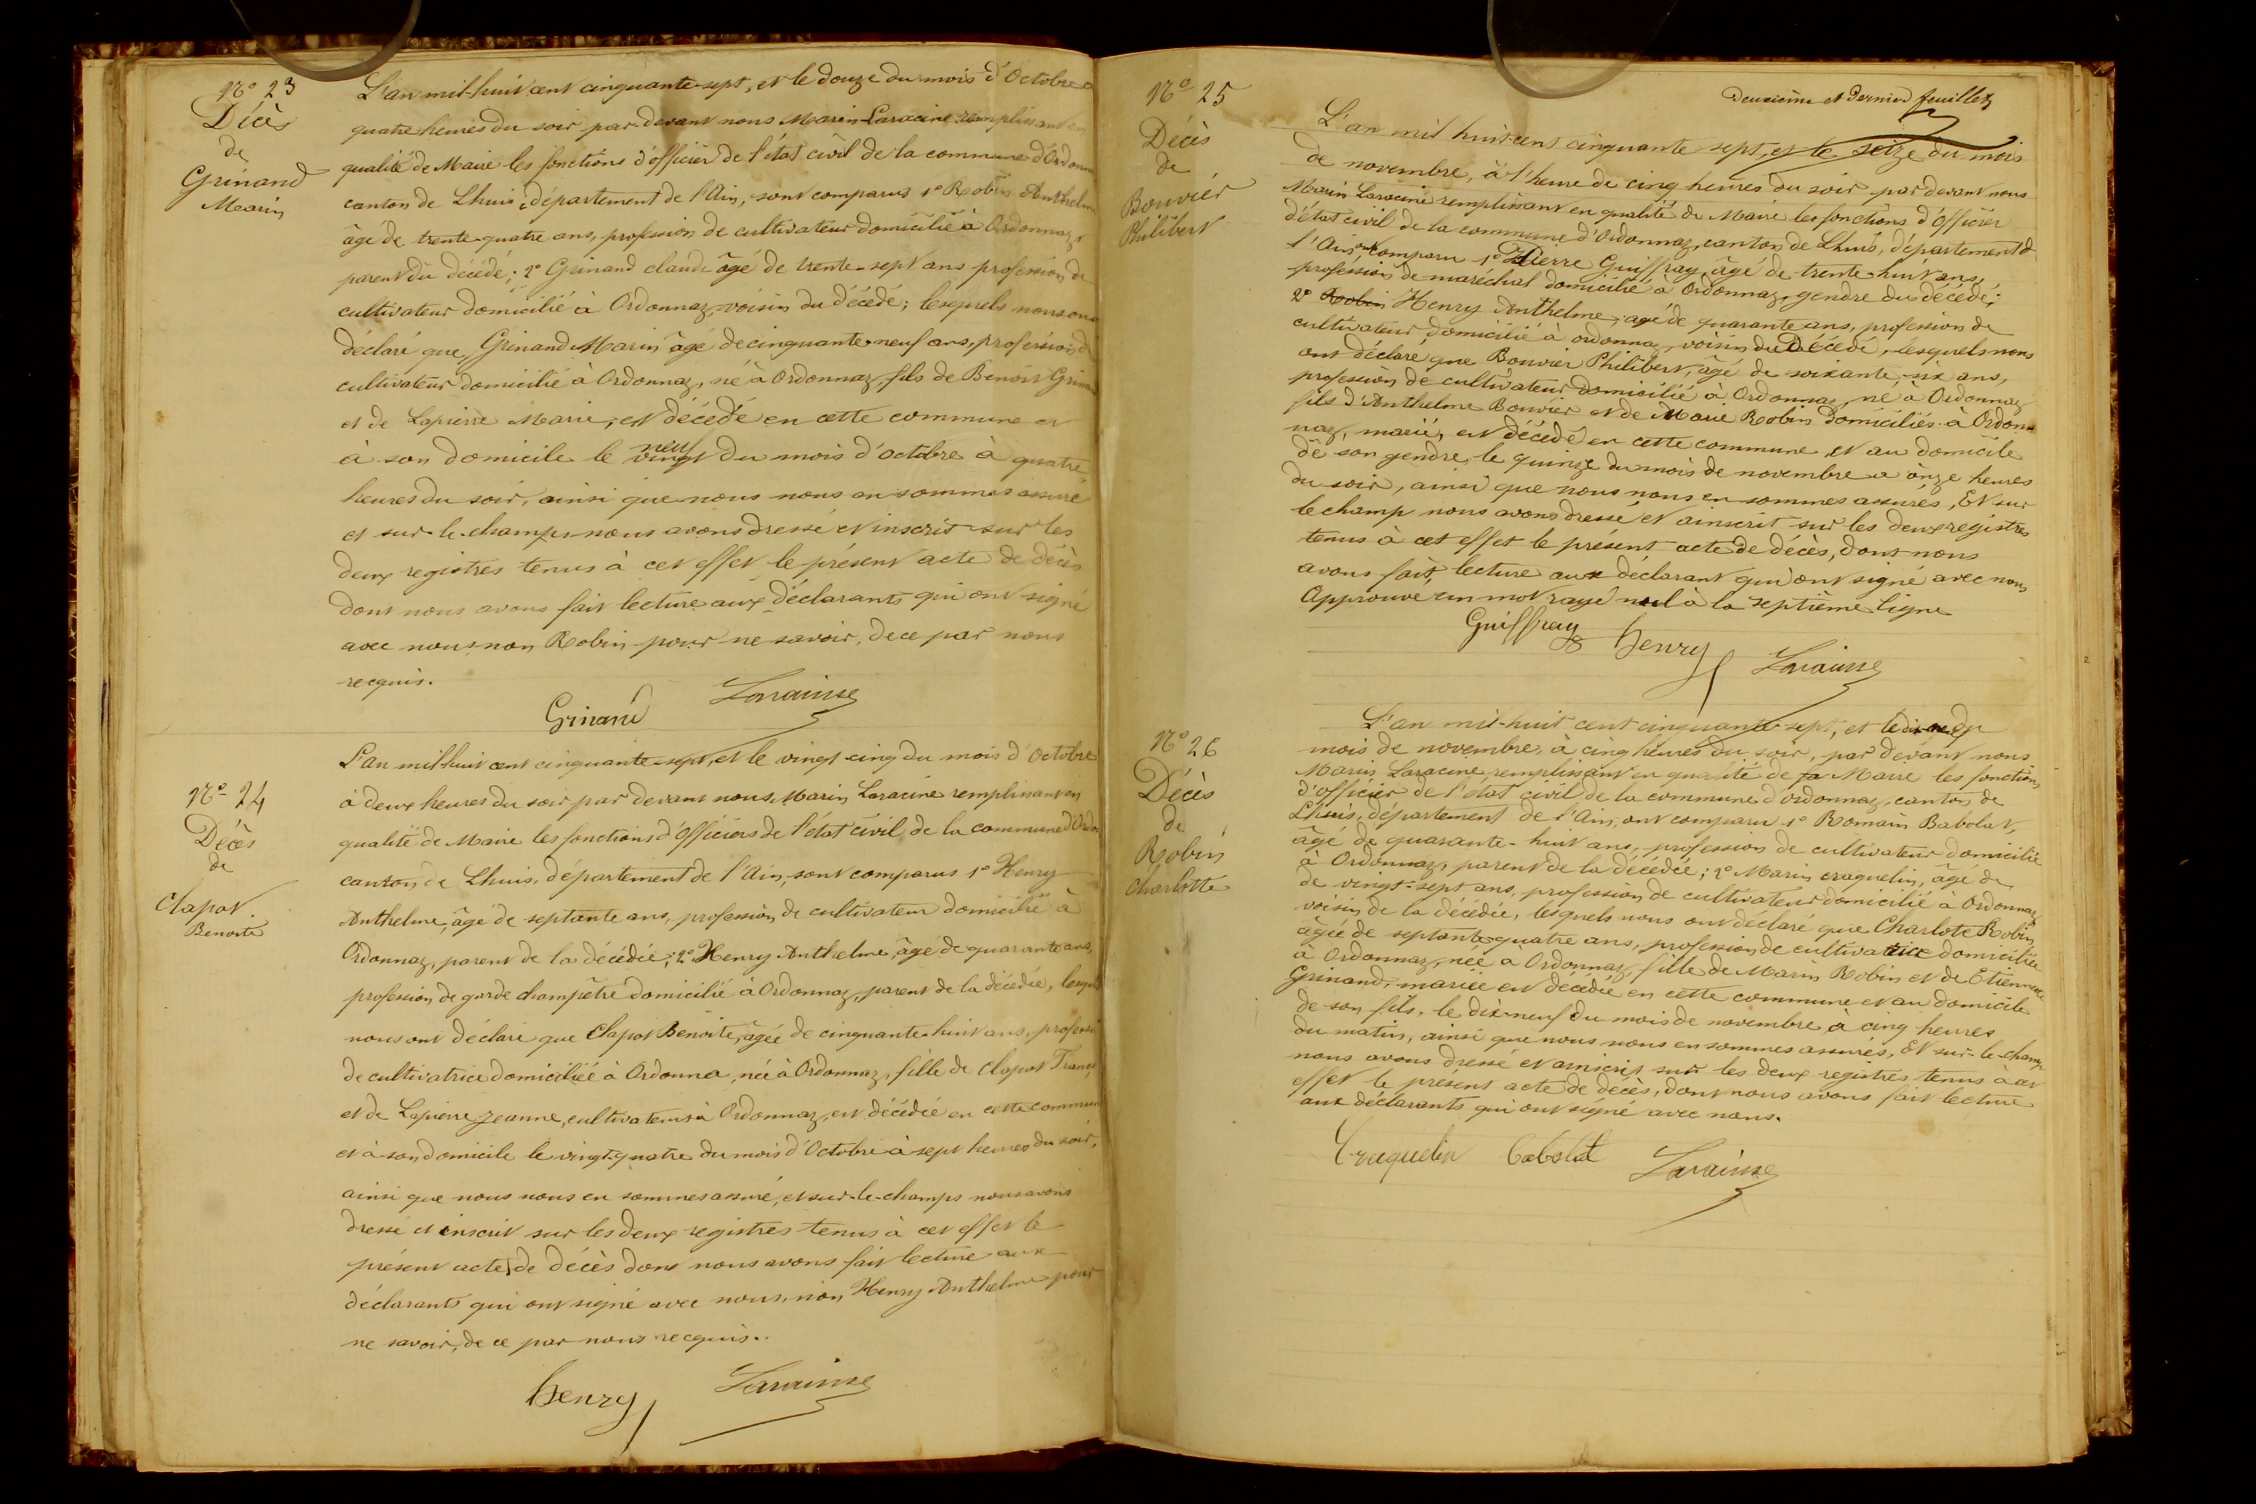 Nº 23
Décès
de
Grinand
Marin
L'an mil-huit cent cinquante-sept, et le douze du mois d'Octobre a
quatre heures du soir par-devant nous Marin Laracine remplissant en
qualité de Maire les fonctions d'officier de l'état civil de la commune d'Ordonnaz
canton de Lhuis, département de l'Ain, sont comparus 1º Robin Anthelme
âgé de trente-quatre ans, profession de cultivateur domicilié à Ordonnaz,
parent du décédé; 2º Grinand claude âgé de trente-sept ans profession de
cultivateur domicilié à Ordonnaz, voisin du décédé; lesquels nous ont
déclaré que, Grinand Marin âgé de cinquante-neuf ans, profession de
cultivateur domicilié à Ordonnaz, né à Ordonnaz, fils de Benoît Grinand
et de Lapierre Marie, est décédé en cette commune et
à son domicile le neuf du mois d'octobre à quatre
heures du soir, ainsi que nous nous en sommes assuré
et sur-le-champs nous avons dressé et inscrit sur les
deux registres tenus à cet effet le présent acte de décès
dont nous avons fait lecture aux déclarants qui ont signé
avec nous, non Robin pour ne savoir, de ce par nous
recquis.
Grinand Laracine
Nº 24
Décès
de
Clapot
Benoite
L'an mil-huit cent cinquante-sept, et le vingt-cinq du mois d'Octobre
à deux heures du soir par devant nous, Marin Laracine remplissant en
qualité de Maire les fonctions d'Officiers de l'état civil de la commune d'Ordo
canton de Lhuis, département de l'Ain, sont comparus 1º Henry
Anthelme, âgé de septante ans, profession de cultivateur domicilié à
Ordonnaz, parent de la décédée; 2º Henry Anthelme, âgé de quarante ans,
profession de garde champêtre domicilié à Ordonnaz, parent de la décédée, lesquels
nous ont déclaré que Clapot Benoite, âgée de cinquante-huit ans, professi
de cultivatrice domiciliée à Ordonna, née à Ordonnaz, fille de Clapot Franç
et de Lapierre Jeanne, cultivateurs à Ordonnaz, est décédée en cette commune
et à son domicile le vingt-quatre du mois d'Octobre à sept heures du soir,
ainsi que nous nous en sommes assuré, et sur-le-champs nous avons
dressé et inscrit sur les deux registres tenus à cet effet le
présent acte de décès dont nous avons fait lecture aux
déclarants qui ont signé avec nous, non Henry Anthelme pour
ne savoir, de ce par nous recquis.
Henry Laracine
Deuxième et Dernier feuillet
Nº 25
Décès
de
Bouvier
Philibert
L'an mil huit-cent cinquante sept, et le seize du mois
de novembre, à l'heure de cinq heures du soir par devant nous
Marin Laracine remplissant en qualité de Maire les fonctions d'Officier
d'état civil de la commune d'Ordonnaz, canton de Lhuis, département de
l'Ain, ont comparu 1º Pierre Guiffray, âgé de trente-huit ans,
profession de maréchal domicilié à Ordonnaz, gendre du décédé;
2º Robin Henry Anthelme, agé de quarante ans, profession de
cultivateur domicilié à ordonnaz, voisin du Décédé, lesquels nous
ont déclaré que Bouvier Philibert, âgé de soixante-six ans,
profession de cultivateur domicilié à Ordonnaz, né à Ordonnaz
fils d'Anthelme Bouvier et de Marie Robin domiciliés à Ordon
naz, marié, est décédé en cette commune et au domicile
de son gendre, le quinze du mois de novembre a onze heures
du soir, ainsi que nous nous en sommes assurés, Et sur
le champ nous avons dressé et ainscrit sur les deux registres
tenus à cet effet le présent acte de décès, dont nous
avons fait, lecture aux déclarant qui ont signé avec nous
Approuvé un mot rayé nul à la septième ligne
Guiffray Henry Laracine
Nº 26
Décès
de
Robin
Charlotte
L'an mil-huit cent cinquante-sept, et le du
mois de novembre, à cinq heures du soir, par devant nous
Marin Laracine remplissant en qualité de Maire les fonctions
d'officier de l'état civil de la commune d'ordonnaz, canton de
Lhuis, département de l'Ain, ont comparu 1º Romain Babolat,
âgé de quarante-huit ans, profession de cultivateur domicilié
à Ordonnaz, parent de la décédée; 2º Marin craquelin, âgé de
de vingt-sept ans, profession de cultivateur domicilié à Ordonnaz
voisin de la décédée, lesquels nous ont déclaré que Charlote Robin
âgée de septante-quatre ans, profession de cultivatrice domiciliée
à Ordonnaz, née à Ordonnaz, fille de Marin Robin et de Etiennette
Grinand, mariée est décédée en cette commune et au domicile
de son fils, le dix-neuf du mois de novembre à cinq heures
du matin, ainsi que nous nous en sommes assurés, Et sur-le-champ
nous avons dressé et ainscrit sur les deux registres tenus à cet
effet le présent acte de décès, dont nous avons fait lecture
aux déclarants qui ont signé avec nous.
Craquelin Babolat Laracine